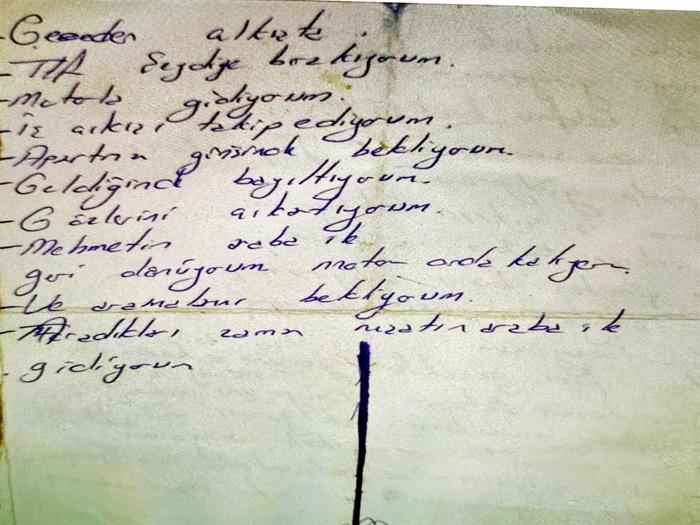 - Geceden
- bırakıyorum.
- Motorla gidiyorum.
- İş çıkışı takip ediyorum.
- Apartman girişinde bekliyorum.
- Geldiğinde bayıltıyorum.
- Gözlerini çıkartıyorum.
- Mehmetin araba ile
geri dönüyorum motor orda kalıyor.
- Ve bekliyorum.
- Aradıkları zaman araba ile
gidiyorum